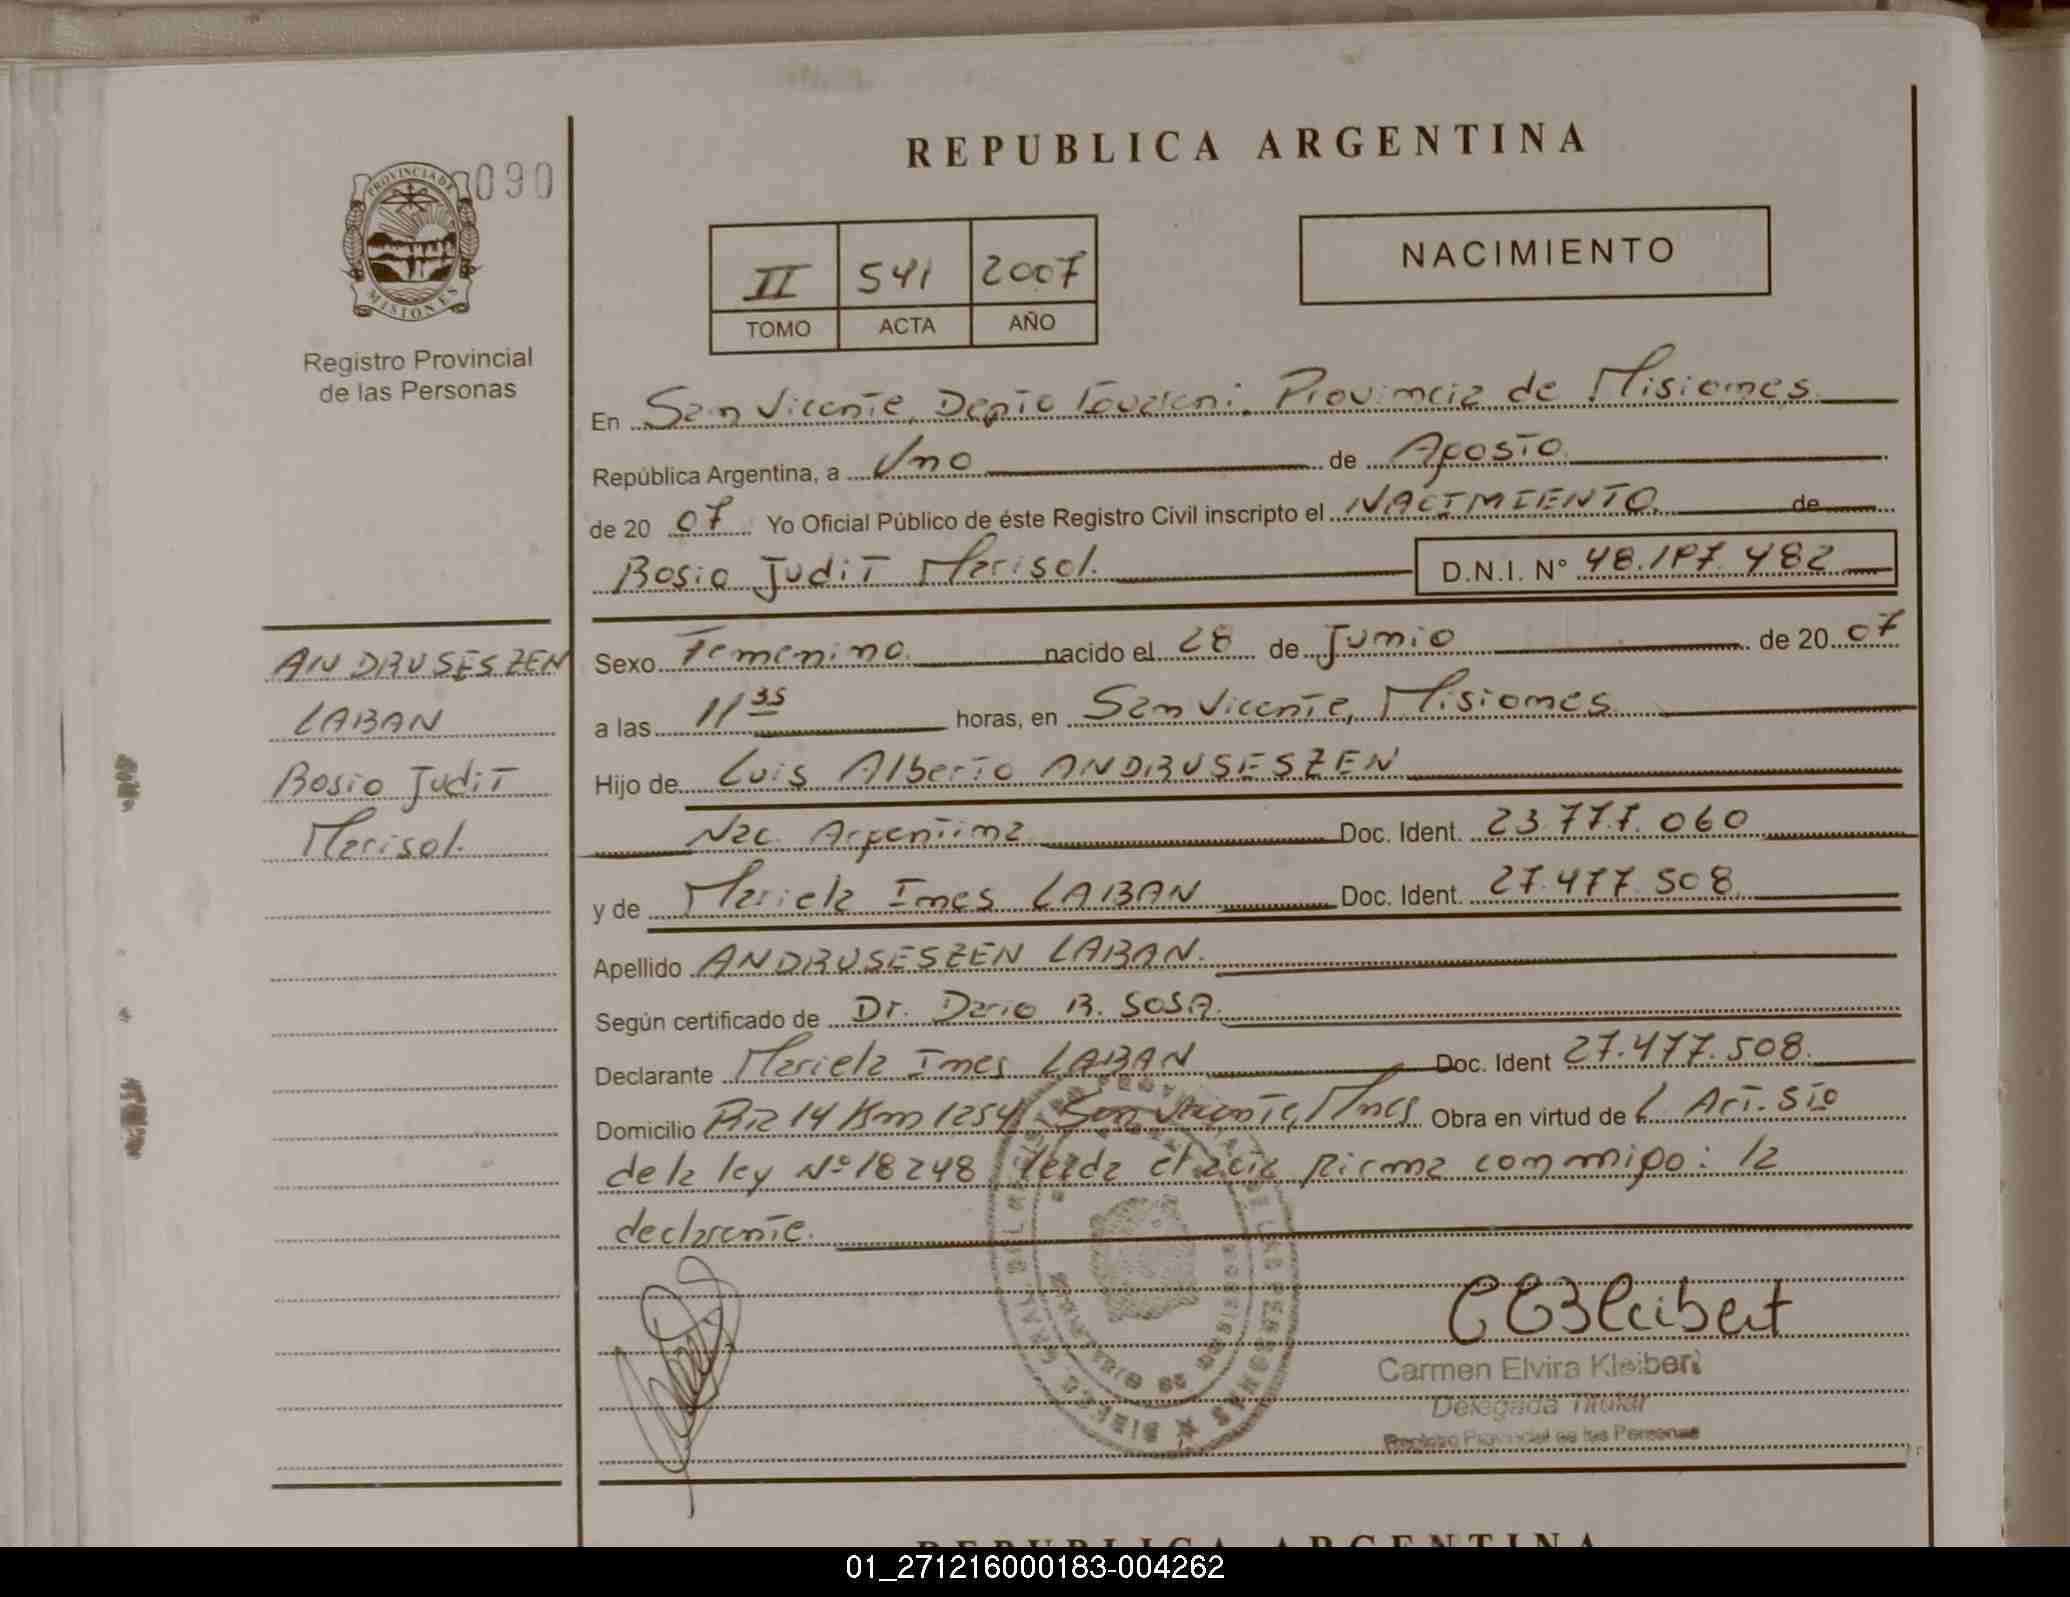 REPUBLICA ARGENTINA
090
PROVINCIA DE
MISIONES
Registro Provincial
de las Personas
II 541 2007
TOMO ACTA AÑO
NACIMIENTO
En San Vicente, Depto Guarani. Provincia de Misiones
República Argentina, a Uno de Agosto
de 20 07 Yo Oficial Público de éste Registro Civil inscripto el NACIMIENTO de
Rosio Judit Marisol. D.N.I. Nº 48.197.482
ANDRUSESZEN
LABAN
Rosio Judit
Marisol.
Sexo Femenino nacido el 28 de Junio de 20 07
a las 11 35 horas, en San Vicente, Misiones
Hijo de Luis Alberto ANDRUSESZEN
Nac. Argentina Doc. Ident. 23.777.060
y de Mariela Ines LABAN Doc. Ident. 27.477.508
Apellido ANDRUSESZEN LABAN.
Según certificado de Dr. Dario R. SOSA.
Declarante Mariela Ines LABAN Doc. Ident 27.477.508.
Domicilio Rta 14 Km 1254 San Vicente, Mnes Obra en virtud de L Art. 5to
de la ley Nº 18248 leida el acta firma conmigo: la
declarante.
Carmen Elvira Kleibert
Delegada Titular
Registro Provincial de las Personas
REPUBLICA ARGENTINA
01_271216000183-004262